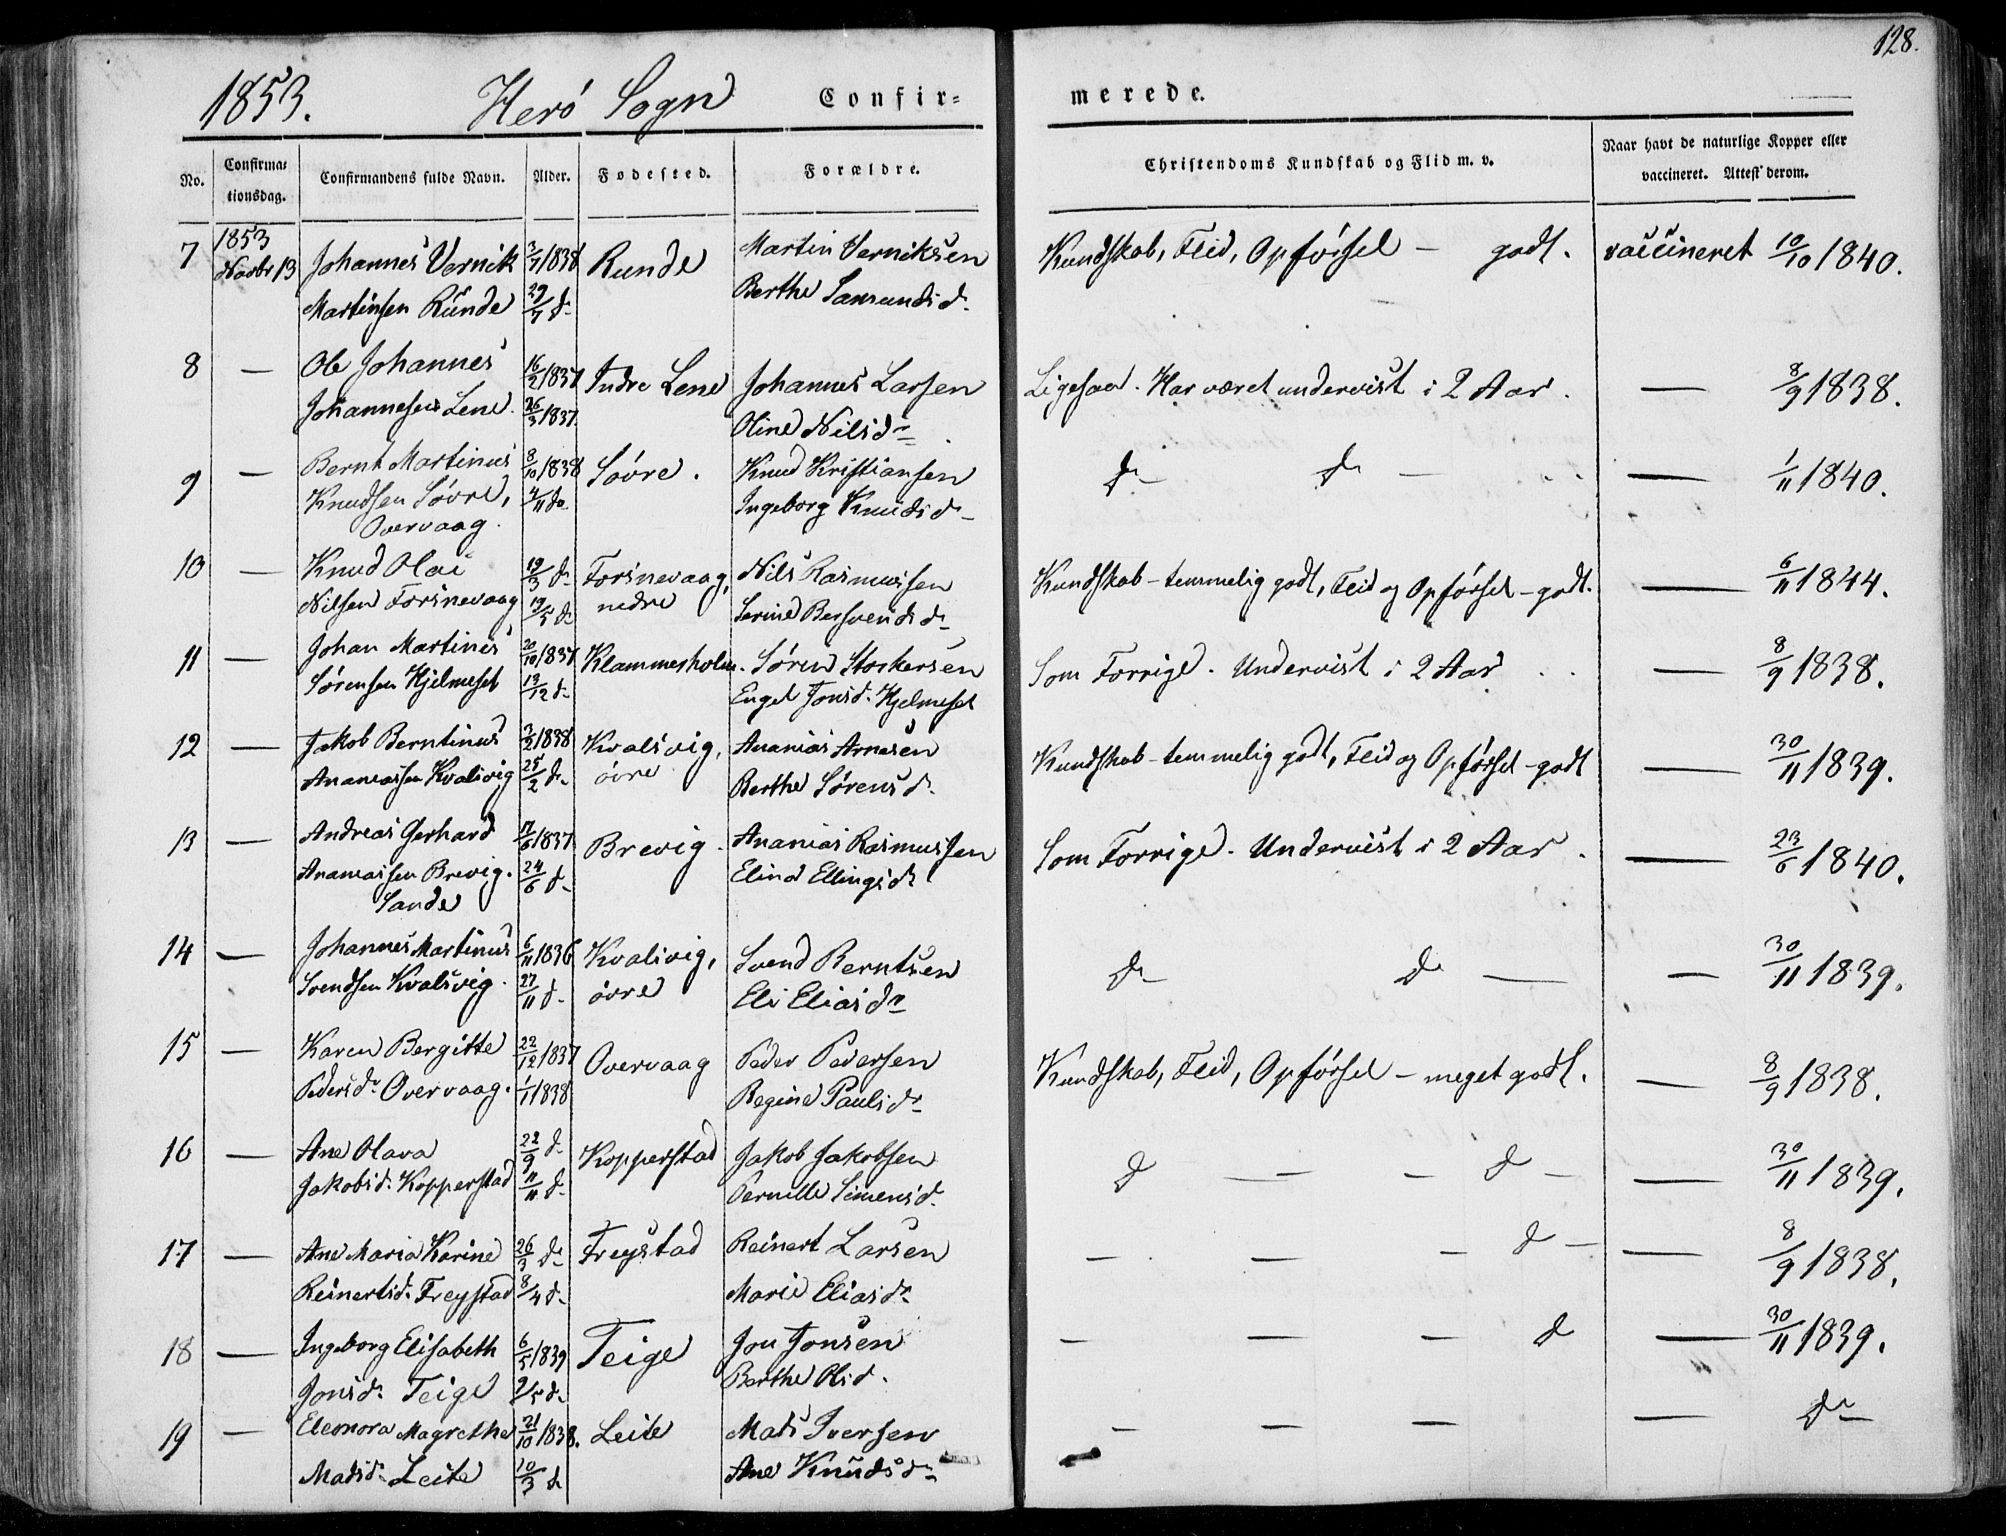 128.
1853. Herø Sogn Confir= merede.
No. Confirma= tionsdag. Confirmandens fulde Navn. Alder. Fødested. Forældre. Christendoms Kundskab og Flid m. v. Naar havt de naturlige Kopper eller vaccineret. Attest derom.
7 1853 Novbr 13 Johannes Vernik 3/7 1838 Runde Martin Verniksen Kundskab, Flid, Opførsel — godt. vaccineret 10/10 1840.
Martinsen Runde 29/7 do Berthe Samundsdr
8 — Ole Johannes 16/2 1837 Indre Lene Johannes Larsen Ligesaa. Har været undervist i 2 Aar. — 8/9 1838.
Johannesen Lene. 26/3 1837. Oline Nilsdr
9 — Bernt Martinus 8/10 1838 Søvre. Knud Kristiansen do do — — 1/11 1840.
Knudsen Søvre, 4/11 do Ingeborg Knudsdr
Overvaag.
10 — Knud Olai 19/3 do Forsnevaag, Nils Rasmussen Kundskab - temmelig godt, Flid og Opførsel - godt. — 6/11 1844.
Nilsen Forsnevaag 19/5 do nedre Serine Bersvendsdr
11 — Johan Martines 20/10 1837 Klammesholm. Søren Storkersen Som Forrige. Undervist i 2 Aar — 8/9 1838.
Sørensen Hjelmeset 13/12 do Engel Jonsd. Hjelmeset
12 — Jakob Berntinus 3/2 1838 Kvalsvig, Ananias Arnesen Kundskab - temmelig godt, Flid og Opførsel - godt — 30/11 1839.
Ananiassen Kvalsvig 25/2 do øvre Berthe Sørensd.
13 — Andreas Gerhard 17/6 1837 Brevig. Ananias Rasmussen Som Forrige. Undervist i 2 Aar. — 23/6 1840.
Ananiassen Brevig. 24/6 do Elind Ellingsdr
Sande
14 — Johannes Martinus 6/11 1836 Kvalsvig, Svend Berntsen do do — — 30/11 1839.
Svendsen Kvalsvig. 27/11 do øvre Eli Eliasdr
15 — Karen Bergitte 22/12 1837 Overvaag Peder Pedersen Kundskab, Flid, Opførsel - meget godt. — 8/9 1838.
Pedersdr Overvaag. 1/1 1838 Regine Paulsdr
16 — Ane Olava 22/9 do Kopperstad Jakob Jakobsen do — — do — — 30/11 1839.
Jakobsd. Kopperstad 11/11 do Pernille Simensd.
17 — Ane Maria Karine 26/3 do Freystad Reinert Larsen — — — do — — 8/9 1838.
Reinertsd. Freystad 8/4 do Marie Eliasdr
18 — Ingeborg Elisabeth 6/5 1839 Teige Jon Jonsen — — — do — 30/11 1839.
Jonsdr Teige 9/5 do Berthe Olsd.
19 — Eleonora Magrethe 21/10 1838. Leite Mads Iversen — — — — do
Madsdr Leite 10/3 do Ane Knudsdr